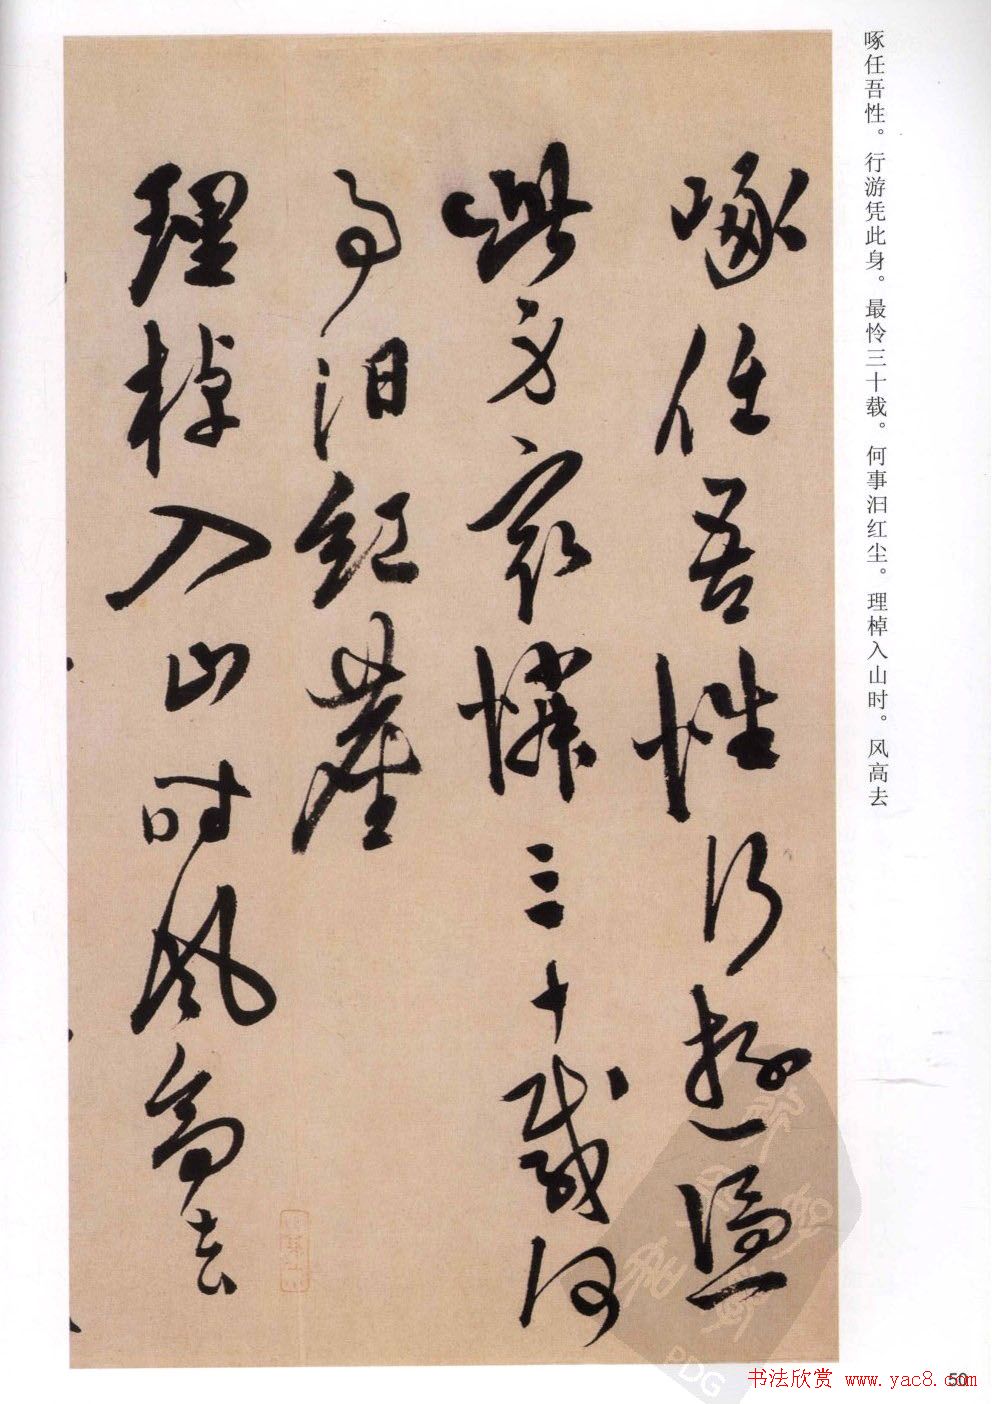 啄任吾性。行游凭此身。最怜三十载。何事汩红尘。理棹入山时。风高去
啄任吾性行遊憑
此身冣憐三十載何
事汩紅塵
理棹入山時風高去
PDG
书法欣赏 www.yac8.com
50